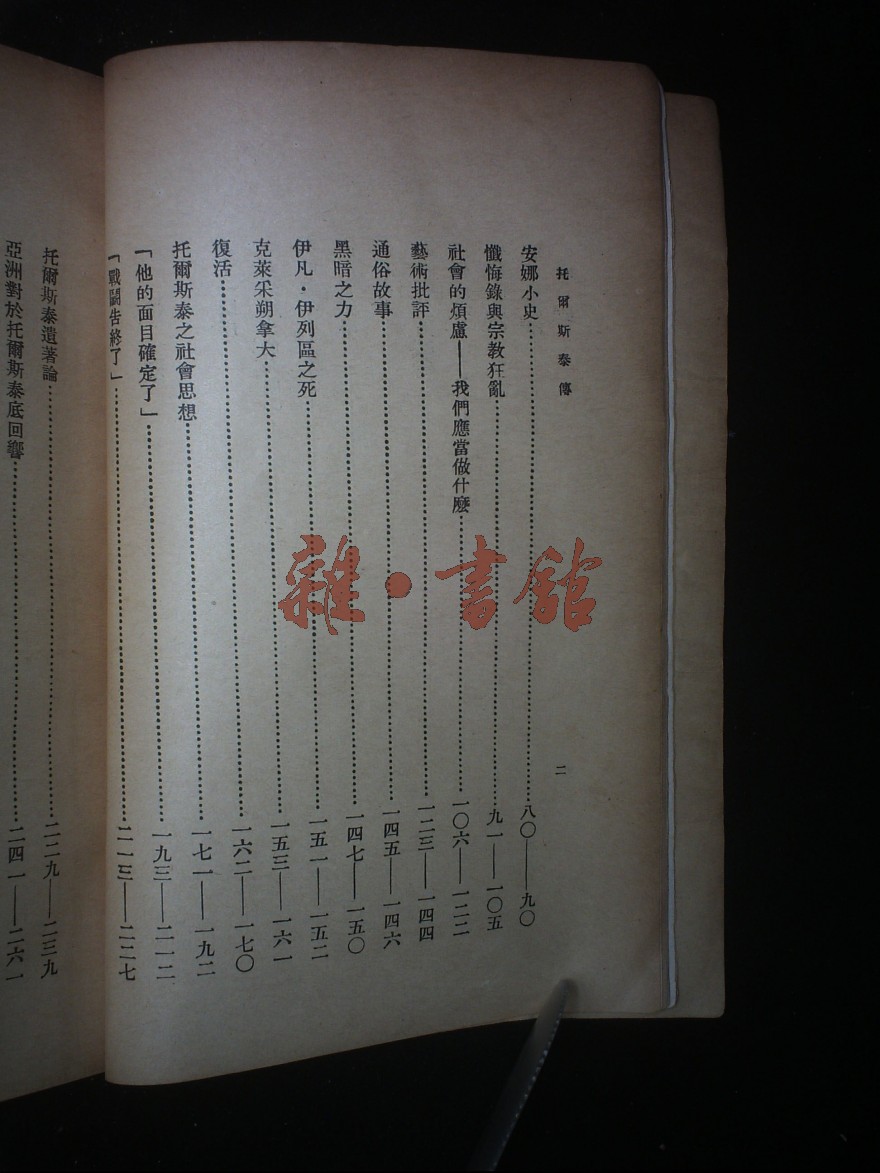 托爾斯泰傳
二
安娜小史……八〇——九〇
懺悔錄與宗教狂亂……九一——一〇五
社會的煩慮——我們應當做什麼……一〇六——一二二
藝術批評……一二三——一四四
通俗故事……一四五——一四六
黑暗之力……一四七——一五〇
伊凡·伊列區之死……一五一——一五二
克萊采朔拿大……一五三——一六一
復活……一六二——一七〇
托爾斯泰之社會思想……一七一——一九二
「他的面目確定了」……一九三——二一二
「戰鬪告終了」……二一三——二二七
托爾斯泰遺著論……二二九——二三九
亞洲對於托爾斯泰底回響……二四一——二六一
雜·書館